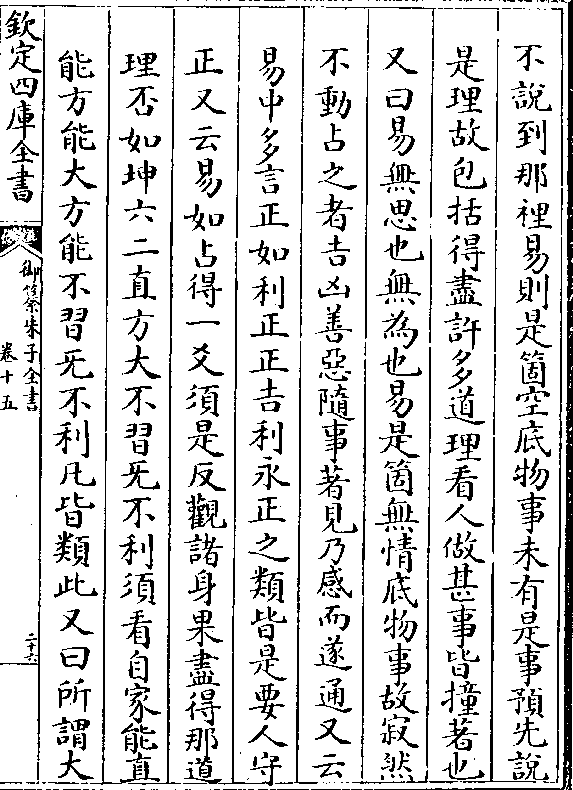 不說到那裡易則是箇空底物事未有是事預先說
是理故包括得盡許多道理看人做甚事皆撞著也
又曰易無思也無為也易是箇無情底物事故寂然
不動占之者吉凶善惡隨事著見乃感而遂通又云
易中多言正如利正正吉利永正之類皆是要人守
正又云易如占得一爻須是反觀諸身果盡得那道
理否如坤六二直方大不習旡不利須看自家能直
能方能大方能不習旡不利凡皆類此又曰所謂大
欽定四庫全書
御纂朱子全書
卷十五
二十六